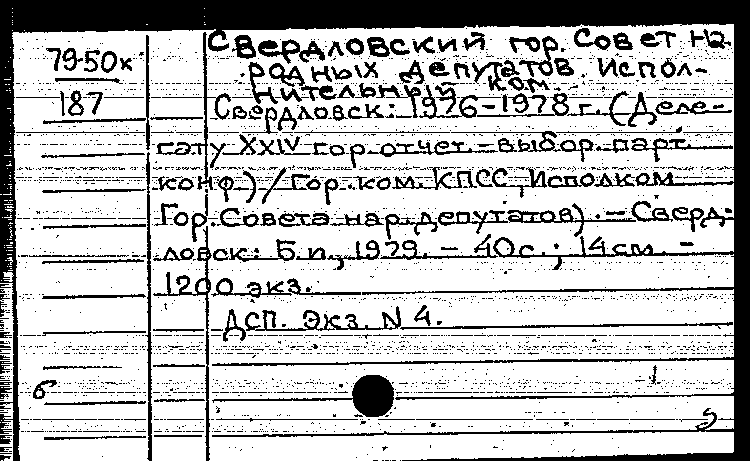 79-50к
187
Свердловский гор. Совет на-
родных депутатов. Испол-
нительный ком.
Свердловск: 1976-1978 г. (Деле-
гату XXIV гор. отчет.-выбор. парт.
конф.) / Гор. ком. КПСС, Исполком
Гор. Совета нар. депутатов). - Сверд-
ловск: Б.и., 1979. - 40с.; 14см. -
1200 экз.
ДСП. Экз. N 4.
б